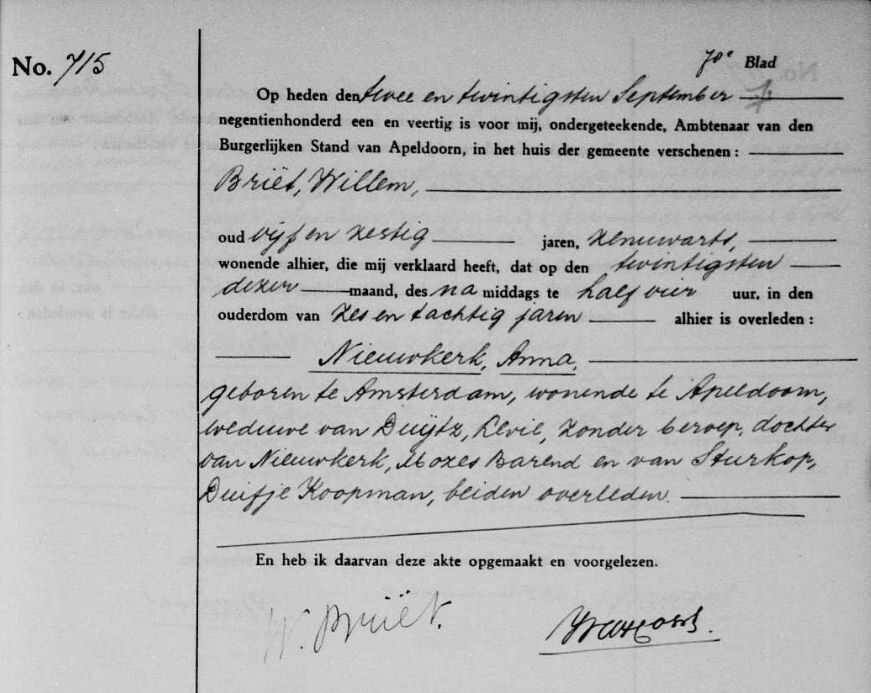 No. 715
70e Blad
Op heden den twee en twintigsten September
negentienhonderd een en veertig is voor mij, ondergeteekende, Ambtenaar van den
Burgerlijken Stand van Apeldoorn, in het huis der gemeente verschenen :
Briët, Willem,
oud vijf en zestig jaren, zenuwarts,
wonende alhier, die mij verklaard heeft, dat op den twintigsten
dezer maand, des na middags te half vier uur, in den
ouderdom van zes en tachtig jaren alhier is overleden :
Nieuwkerk, Anna,
geboren te Amsterdam, wonende te Apeldoorn,
weduwe van Duijtz, Levie, zonder beroep, dochter
van Nieuwkerk, Mozes Barend en van Sturkop,
Duifje Koopman, beiden overleden.
En heb ik daarvan deze akte opgemaakt en voorgelezen.
W. Briët.